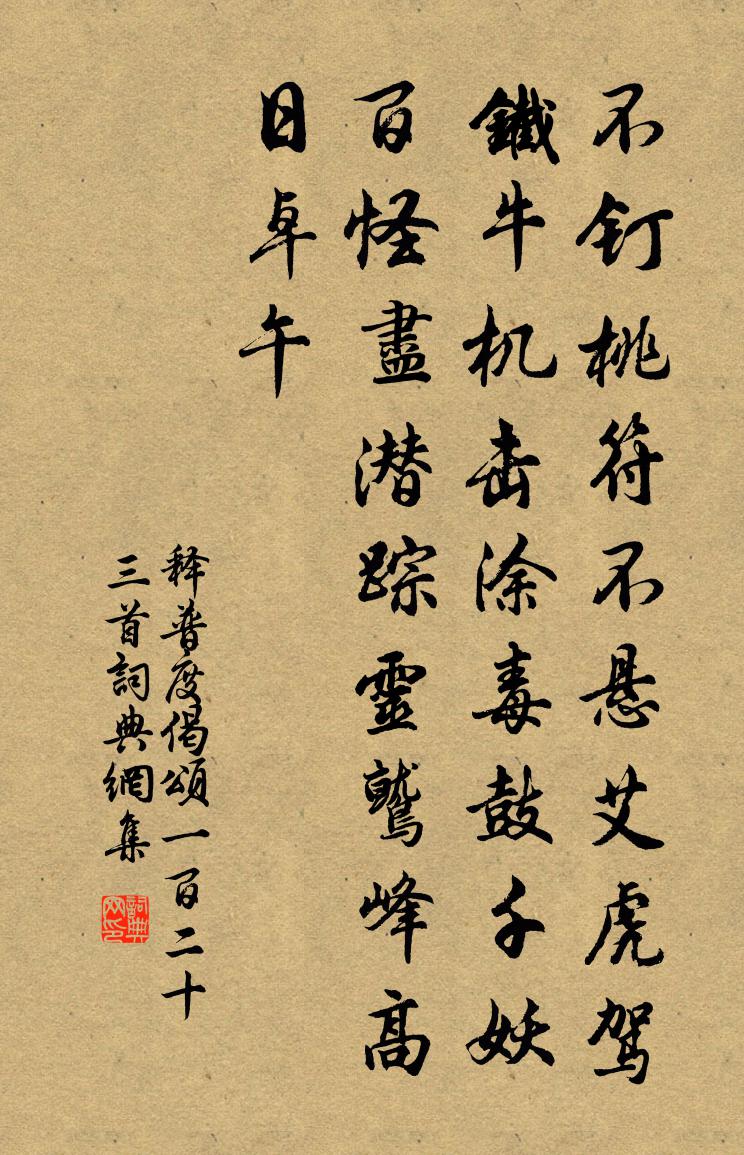 不釘桃符不悬艾虎駕
鐵牛机击除毒鼓千妖
百怪盡潜踪靈鷲峰高
日卓午
释普度偈頌一百二十
三首詞典網集
詞典网印